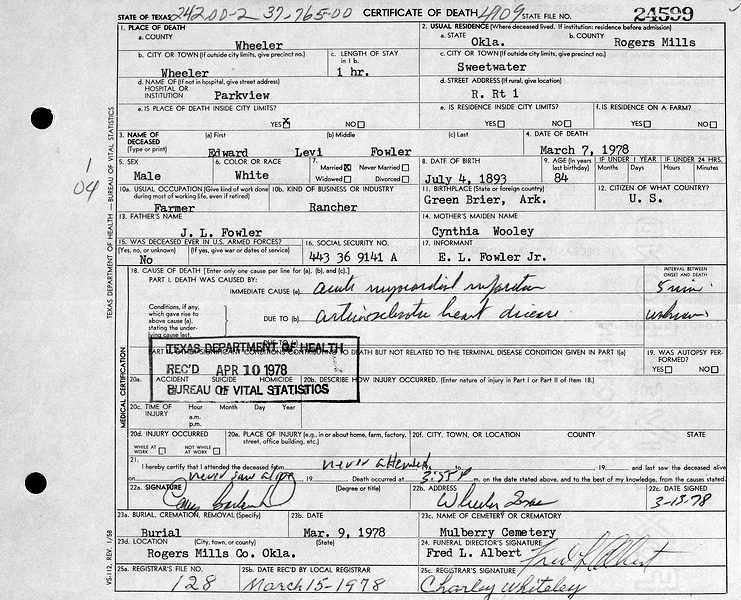 STATE OF TEXAS 24200-2 37-765-00 CERTIFICATE OF DEATH 4909 STATE FILE NO. 24599
1. PLACE OF DEATH
a. COUNTY
Wheeler
2. USUAL RESIDENCE (Where deceased lived. If institution: residence before admission)
a. STATE b. COUNTY
Okla. Rogers Mills
b. CITY OR TOWN (If outside city limits, give precinct no.)
Wheeler
c. LENGTH OF STAY in 1 b.
1 hr.
c. CITY OR TOWN (If outside city limits, give precinct no.)
Sweetwater
d. NAME OF (If not in hospital, give street address)
HOSPITAL OR
INSTITUTION Parkview
d. STREET ADDRESS (If rural, give location)
R. Rt 1
e. IS PLACE OF DEATH INSIDE CITY LIMITS?
YES X NO
e. IS RESIDENCE INSIDE CITY LIMITS?
YES NO
f. IS RESIDENCE ON A FARM?
YES NO
3. NAME OF DECEASED (Type or print)
(a) First (b) Middle (c) Last
Edward Levi Fowler
4. DATE OF DEATH
March 7, 1978
5. SEX
Male
6. COLOR OR RACE
White
7.
Married X Never Married
Widowed Divorced
8. DATE OF BIRTH
July 4, 1893
9. AGE (In years last birthday)
84
IF UNDER 1 YEAR
Months Days
IF UNDER 24 HRS.
Hours Minutes
10a. USUAL OCCUPATION (Give kind of work done during most of working life, even if retired)
Farmer
10b. KIND OF BUSINESS OR INDUSTRY
Rancher
11. BIRTHPLACE (State or foreign country)
Green Brier, Ark.
12. CITIZEN OF WHAT COUNTRY?
U. S.
13. FATHER'S NAME
J. L. Fowler
14. MOTHER'S MAIDEN NAME
Cynthia Wooley
15. WAS DECEASED EVER IN U.S. ARMED FORCES?
(Yes, no, or unknown) (If yes, give war or dates of service)
No
16. SOCIAL SECURITY NO.
443 36 9141 A
17. INFORMANT
E. L. Fowler Jr.
18. CAUSE OF DEATH [Enter only one cause per line for (a), (b), and (c).]
INTERVAL BETWEEN ONSET AND DEATH
PART I. DEATH WAS CAUSED BY:
IMMEDIATE CAUSE (a) acute myocardial infarction 5 min
Conditions, if any, which gave rise to above cause (a), stating the underlying cause last.
DUE TO (b) arteriosclerotic heart disease unknown
PART II. OTHER SIGNIFICANT CONDITIONS CONTRIBUTING TO DEATH BUT NOT RELATED TO THE TERMINAL DISEASE CONDITION GIVEN IN PART I(a)
TEXAS DEPARTMENT OF HEALTH
REC'D APR 10 1978
BUREAU OF VITAL STATISTICS
19. WAS AUTOPSY PERFORMED?
YES NO
20a. ACCIDENT SUICIDE HOMICIDE
20b. DESCRIBE HOW INJURY OCCURRED. (Enter nature of injury in Part I or Part II of Item 18.)
20c. TIME OF INJURY
Hour Month Day Year
a.m.
p.m.
20d. INJURY OCCURRED
WHILE AT WORK NOT WHILE AT WORK
20e. PLACE OF INJURY (e.g., in or about home, farm, factory, street, office building, etc.)
20f. CITY, TOWN, OR LOCATION COUNTY STATE
21.
I hereby certify that I attended the deceased from never attended 19 to 19 and last saw the deceased alive
on never saw alive 19 Death occurred at 3:55 P m. on the date stated above, and to the best of my knowledge, from the causes stated.
22a. SIGNATURE (Degree or title)
22b. ADDRESS
Wheeler Texas
22c. DATE SIGNED
3-13-78
23a. BURIAL, CREMATION, REMOVAL (Specify)
Burial
23b. DATE
Mar. 9, 1978
23c. NAME OF CEMETERY OR CREMATORY
Mulberry Cemetery
23d. LOCATION (City, town, or county) (State)
Rogers Mills Co. Okla.
24. FUNERAL DIRECTOR'S SIGNATURE
Fred L. Albert Fred L Albert
25a. REGISTRAR'S FILE NO.
128
25b. DATE REC'D BY LOCAL REGISTRAR
March 15-1978
25c. REGISTRAR'S SIGNATURE
Charley Whiteley
TEXAS DEPARTMENT OF HEALTH—BUREAU OF VITAL STATISTICS
MEDICAL CERTIFICATION
VS-112, REV. 1/58
1
04